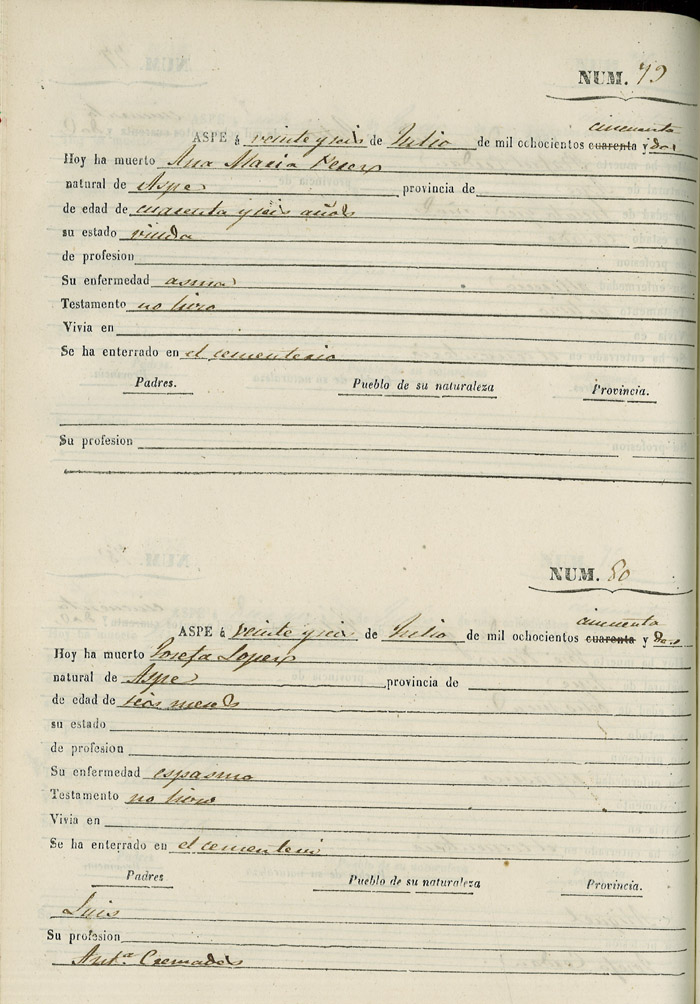 NUM. 79
cincuenta
ASPE á veinte y seis de Julio de mil ochocientos cuarenta y dos
Hoy ha muerto Ana Maria Perez
natural de Aspe provincia de
de edad de cuarenta y seis años
su estado viuda
de profesion
Su enfermedad asma
Testamento no hizo
Vivia en
Se ha enterrado en el cementerio
Padres. Pueblo de su naturaleza Provincia.
Su profesion
NUM. 80
cincuenta
ASPE á veinte y seis de Julio de mil ochocientos cuarenta y dos
Hoy ha muerto Josefa Lopez
natural de Aspe provincia de
de edad de seis meses
su estado
de profesion
Su enfermedad espasmo
Testamento no hizo
Vivia en
Se ha enterrado en el cementeri
Padres Pueblo de su naturaleza Provincia.
Luis
Su profesion
Antª Cremades